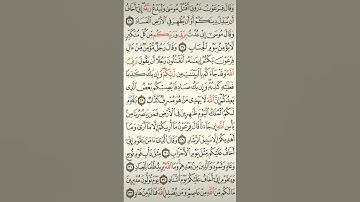 وَقَالَ فِرْعَوْنُ ذَرُونِىٓ أَقْتُلْ مُوسَىٰ وَلْيَدْعُ رَبَّهُۥٓ إِنِّىٓ أَخَافُ
أَن يُبَدِّلَ دِينَكُمْ أَوْ أَن يُظْهِرَ فِى ٱلْأَرْضِ ٱلْفَسَادَ ٢٦
وَقَالَ مُوسَىٰٓ إِنِّى عُذْتُ بِرَبِّى وَرَبِّكُم مِّن كُلِّ مُتَكَبِّرٍ
لَّا يُؤْمِنُ بِيَوْمِ ٱلْحِسَابِ ٢٧ وَقَالَ رَجُلٌ مُّؤْمِنٌ مِّنْ ءَالِ
فِرْعَوْنَ يَكْتُمُ إِيمَٰنَهُۥٓ أَتَقْتُلُونَ رَجُلًا أَن يَقُولَ رَبِّىَ
ٱللَّهُ وَقَدْ جَآءَكُم بِٱلْبَيِّنَٰتِ مِن رَّبِّكُمْ وَإِن يَكُ كَٰذِبًا
فَعَلَيْهِ كَذِبُهُۥ وَإِن يَكُ صَادِقًا يُصِبْكُم بَعْضُ ٱلَّذِى
يَعِدُكُمْ إِنَّ ٱللَّهَ لَا يَهْدِى مَنْ هُوَ مُسْرِفٌ كَذَّابٌ ٢٨
يَٰقَوْمِ لَكُمُ ٱلْمُلْكُ ٱلْيَوْمَ ظَٰهِرِينَ فِى ٱلْأَرْضِ فَمَن يَنصُرُنَا مِنۢ
بَأْسِ ٱللَّهِ إِن جَآءَنَا قَالَ فِرْعَوْنُ مَآ أُرِيكُمْ إِلَّا مَآ أَرَىٰ وَمَآ
أَهْدِيكُمْ إِلَّا سَبِيلَ ٱلرَّشَادِ ٢٩ وَقَالَ ٱلَّذِىٓ ءَامَنَ يَٰقَوْمِ إِنِّىٓ
أَخَافُ عَلَيْكُم مِّثْلَ يَوْمِ ٱلْأَحْزَابِ ٣٠ مِثْلَ دَأْبِ قَوْمِ نُوحٍ
وَعَادٍ وَثَمُودَ وَٱلَّذِينَ مِنۢ بَعْدِهِمْ وَمَا ٱللَّهُ يُرِيدُ ظُلْمًا لِّلْعِبَادِ ٣١
وَيَٰقَوْمِ إِنِّىٓ أَخَافُ عَلَيْكُمْ يَوْمَ ٱلتَّنَادِ ٣٢ يَوْمَ تُوَلُّونَ مُدْبِرِينَ
مَا لَكُم مِّنَ ٱللَّهِ مِنْ عَاصِمٍ وَمَن يُضْلِلِ ٱللَّهُ فَمَا لَهُۥ مِنْ هَادٍ ٣٣